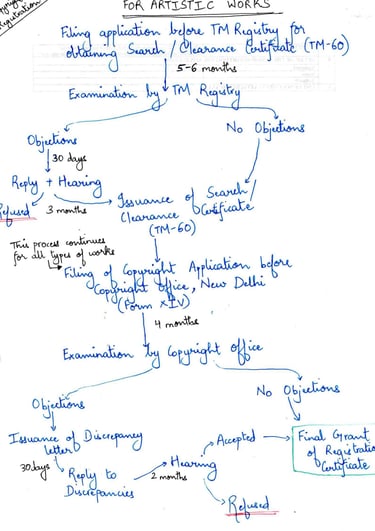 Registration
FOR ARTISTIC WORKS
Filing application before TM Registry for
obtaining Search / Clearance Certificate (TM-60)
5-6 months
Examination by TM Registry
Objections
No Objections
30 days
Reply + Hearing
Refused
3 months
Issuance of Search/
Clearance Certificate
(TM-60)
This process continues
for all types of works
Filing of Copyright Application before
Copyright Office, New Delhi
(Form XIV)
4 months
Examination by Copyright office
Objections
No Objections
Issuance of Discrepancy
letter
30 days
Reply to
Discrepancies
2 months
Hearing
Accepted
Refused
Final Grant
of Registration
Certificate